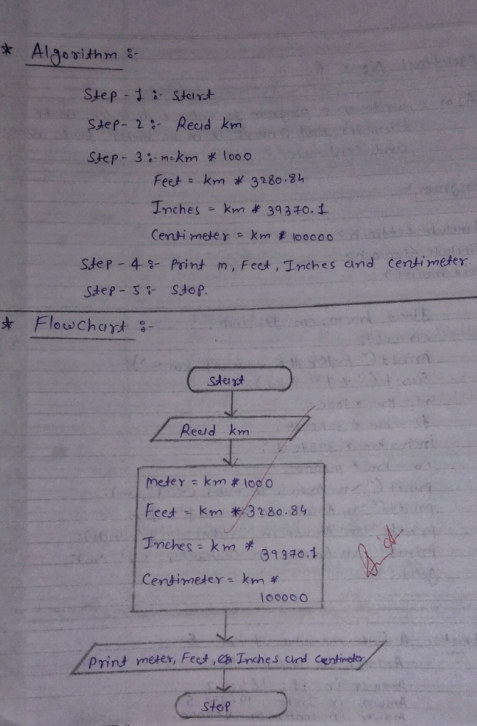 * Algorithm :-
Step - 1 :- Start
Step - 2 :- Read km
Step - 3 :- m = km * 1000
Feet = km * 3280.84
Inches = km * 39370.1
Centimeter = km * 100000
Step - 4 :- Print m, Feet, Inches and centimeter.
Step - 5 :- Stop.
* Flowchart :-
Start
Read km
meter = km * 1000
Feet = km * 3280.84
Inches = km *
39370.1
Centimeter = km *
100000
Print meter, Feet, Inches and Centimeter
Stop